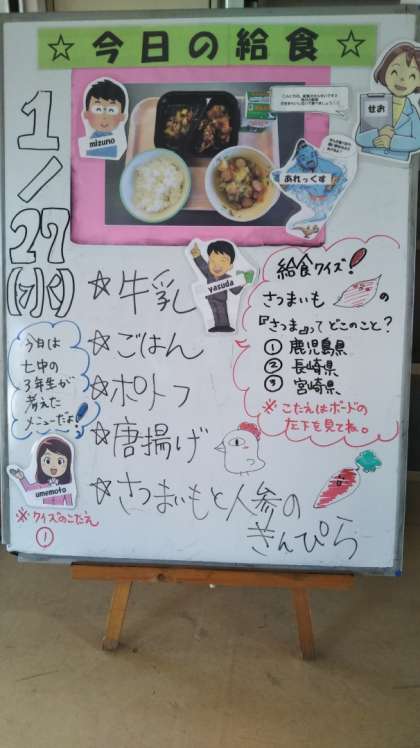 ☆今日の給食☆
mizuno
せお
あれっくす
1/27(水)
yasuda
☆牛乳
☆ごはん
☆ポトフ
☆唐揚げ
☆さつまいもと人参の
きんぴら
給食クイズ!
さつまいも の
『さつま』って どこのこと?
① 鹿児島県
② 長崎県
③ 宮崎県
※こたえはボードの
左下を見てね。
今日は
七中の
3年生が
考えた
メニューだよ!
umemoto
※クイズのこたえ
①